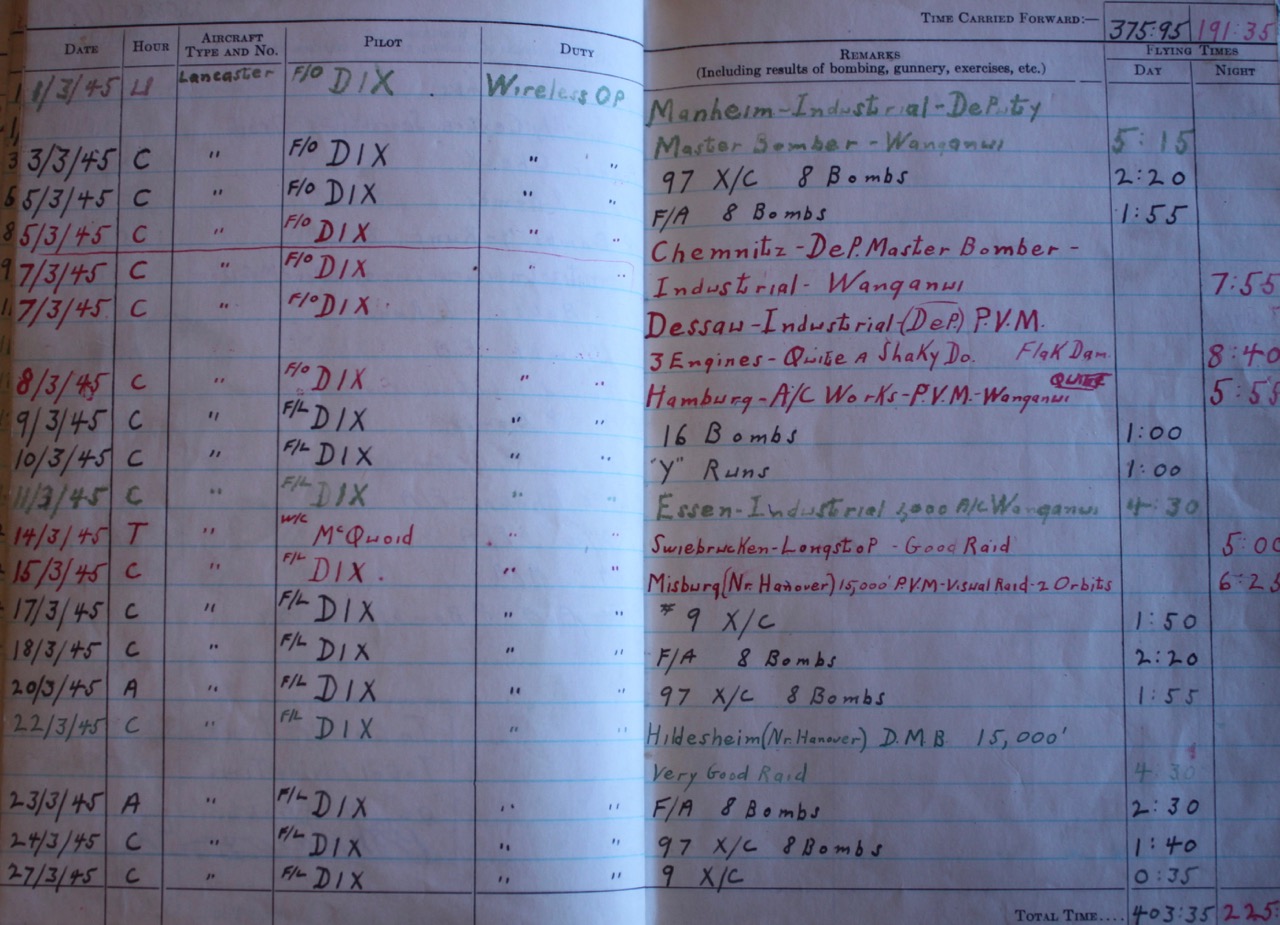 TIME CARRIED FORWARD:— 375:95 191:35
DATE HOUR AIRCRAFT TYPE AND NO. PILOT DUTY REMARKS (Including results of bombing, gunnery, exercises, etc.) FLYING TIMES DAY NIGHT
1/3/45 Lancaster F/O DIX Wireless OP Manheim-Industrial-Deputy
Master Bomber - Wanganui 5:15
3/3/45 C " F/O DIX " " 97 X/C 8 Bombs 2:20
5/3/45 C " F/O DIX " " F/A 8 Bombs 1:55
5/3/45 C " F/O DIX " " Chemnitz - Dep. Master Bomber -
7/3/45 C " F/O DIX " " Industrial - Wanganui 7:55
7/3/45 C " F/O DIX Dessau-Industrial-(Dep.) P.V.M.
3 Engines - Quite A Shaky Do. Flak Dam. 8:40
8/3/45 C " F/O DIX " " Hamburg-A/C Works-P.V.M.-Wanganui QUITE 5:55
9/3/45 C " F/L DIX " " 16 Bombs 1:00
10/3/45 C " F/L DIX " " "Y" Runs 1:00
11/3/45 C " F/L DIX " " Essen-Industrial 1,000 A/C Wanganui 4:30
14/3/45 T " W/C McQuoid " " Swiebrucken-Longstop - Good Raid 5:00
15/3/45 C " F/L DIX. " " Misburg (Nr. Hanover) 15,000' P.V.M-Visual Raid-2 Orbits 6:25
17/3/45 C " F/L DIX " " 9 X/C 1:50
18/3/45 C " F/L DIX " " F/A 8 Bombs 2:20
20/3/45 A " F/L DIX " " 97 X/C 8 Bombs 1:55
22/3/45 C " F/L DIX " " Hildesheim (Nr. Hanover) D.M.B 15,000'
Very Good Raid 4:30
23/3/45 A " F/L DIX " " F/A 8 Bombs 2:30
24/3/45 C " F/L DIX " " 97 X/C 8 Bombs 1:40
27/3/45 C " F/L DIX " " 9 X/C 0:35
TOTAL TIME.... 403:35 225: